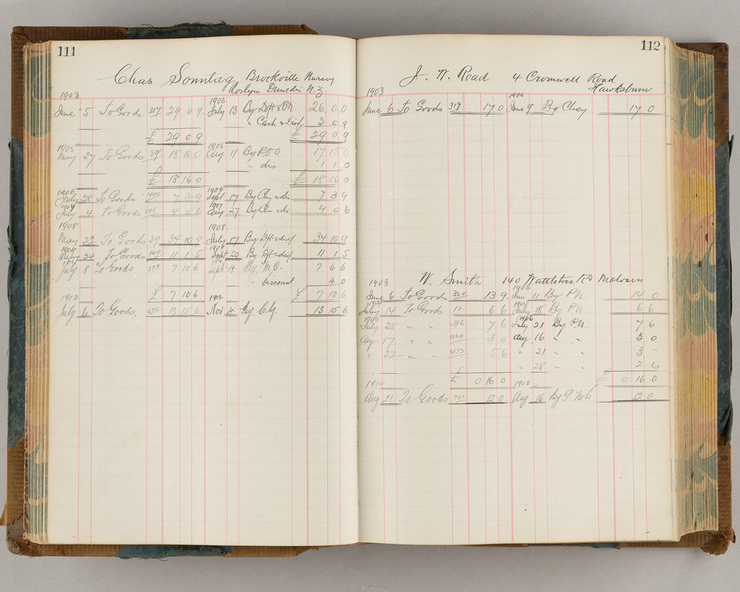 111
Chas Sonntag Brookville Nursery
Roslyn Dunedin N.Z.
1903 1903
June 5 To Goods 317 29 0 9 July 13 By Dft on 26 0 0
" Cash & Disc 3 0 9
£ 29 0 9 £ 29 0 9
1905 1905
May 27 To Goods 39 18 16 0 Aug 11 By P.O. 17 15 0
" dis 1 1 0
£ 18 16 0 £ 18 16 0
1906 1906
28 To Goods 7 3 9 Sept 17 By Chq & dis 7 3 9
July 4 To Goods 4 0 6 Aug 27 By 4 0 6
1908 1908
May 22 To Goods 39 34 10 9 July 17 By Dft & disc 34 10 9
May 24 To Goods 11 1 5 Sept 20 By Dft & disc 11 1 5
July 8 To Goods 7 10 6 Sept 19 By M.O. 7 6 6
" Discount 4 0
£ 7 10 6 £ 7 10 6
1912 1912
July 6 To Goods 13 15 6 Nov By Chq. 13 15 6
112
J. W. Road 4 Cromwell Road
Hawksburn
1903
June 6 To Goods 319 17 0 June 9 By Chq 17 0
1903 W. Smith 140 Wattletree Rd Malvern
June 6 To Goods 13 9 June 11 By P.N. 14 0
July 14 To Goods 6 6 July 15 By P.N. 6 6
1906 1906
July 25 " " 7 6 July 21 By P.N. 7 6
Aug 17 " " 3 0 Aug 16 " " 3 0
" 22 " " 5 6 " 21 " " 3 -
" 28 " " 2 6
£ 0 16 0 £ 0 16 0
1912 1912
Aug 21 To Goods 12 0 Aug 16 By P. Note 12 0